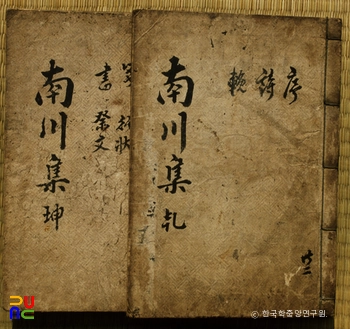 序
詩
輓
南川集 乹
行狀
書 祭文
南川集 珅
ⓒ 한국학중앙연구원